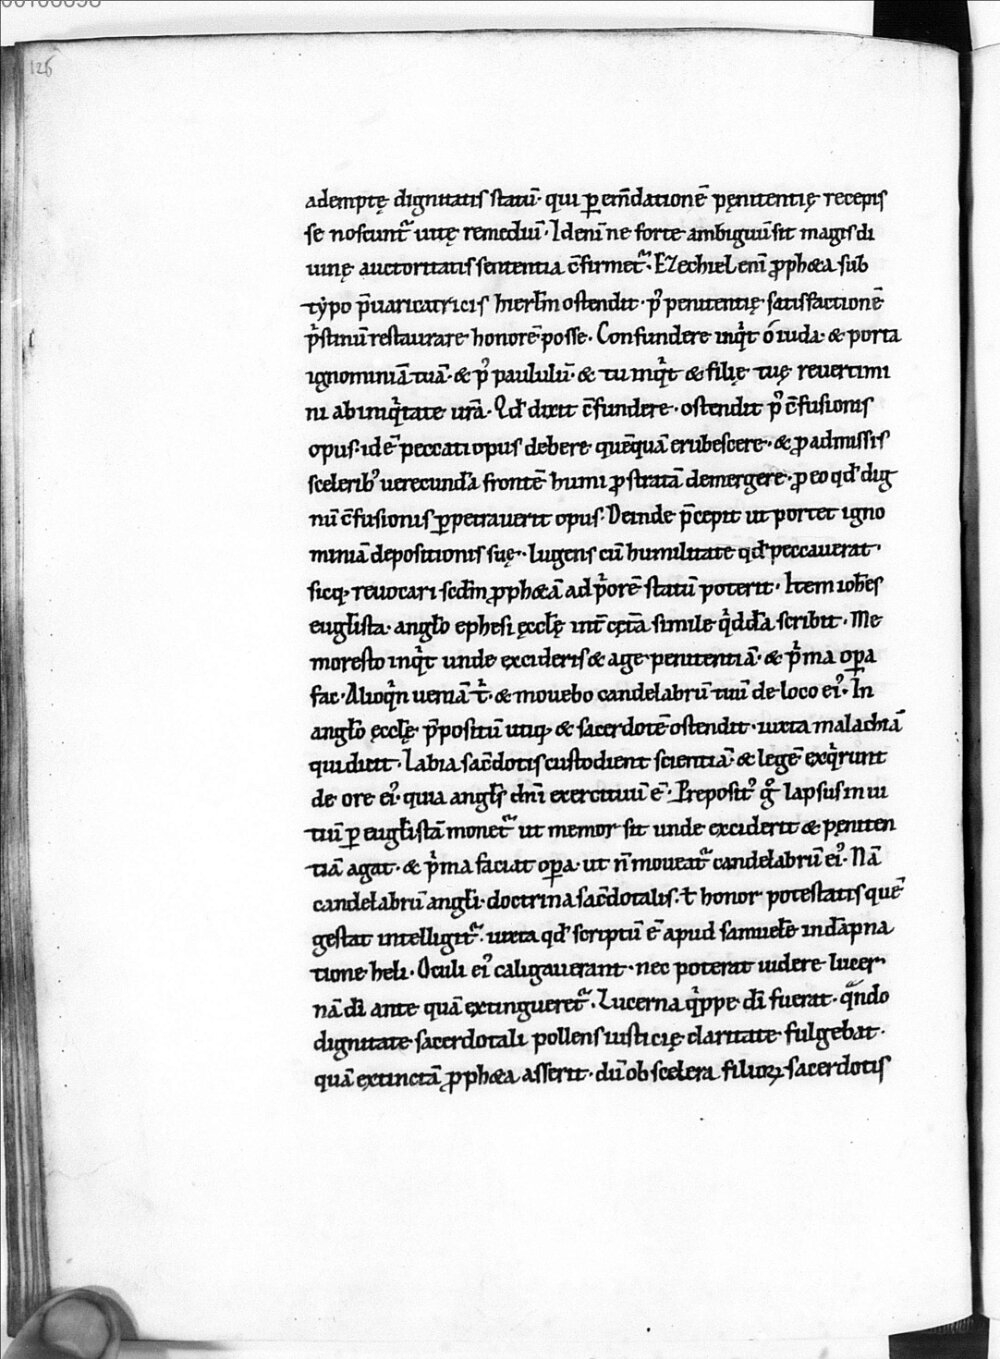 126
ademptę dignitatis statū· qui ꝑ em̄dationē pęnitentię recepis
se noscunt᷑ uitę remediū· Idenī ne forte ambiguū sit magis di
uinę auctoritatis sententia c̄firmet᷑· Ezechiel enī ꝓph&a sub
tẏpo p̄uaricatricis hierlm̄ ostendit· pꝰ penitentię satisfactionē
pͥstinū restaurare honorē posse· Confundere inqͥt ó iuda· & porta
ignominiā tuā· & pꝰ paululū· & tu inqͥt & filię tuę reuertimi
ni ab iniqͥtate ur̄a· Qđ dixit c̄fundere· ostendit pꝰ c̄fusionis
opus· id ē peccati opus debere quēquā erubescere· & ꝓ admissis
sceleribꝰ uerecunda frontē humi ꝓstratā demergere· ꝓ eo qđ dig
nū c̄fusionis ꝑpetrauerit opus· Deinde p̄cepit ut portet igno
miniā depositionis suę· lugens cū humilitate qđ peccauerat·
sicq; reuocari scdm̄ ꝓph&ā ad pͥorē statū poterit· Item ioh̄es
eugl̄ista· angl̄o ephesi ęccl̄ę int̄ cęt̄a simile qͥdđa scribit· Me
moresto inqͥt unde excideris & age penitentiā· & pͥma oꝑa
fac· Alioqͥn ueniā t̄ͥ· & mouebo candelabrū tuū de loco eiꝰ· In
angl̄o ęccl̄ę p̄positū utiq; & sacerdotē ostendit· iuxta malachiā
qui dicit· Labia sac̄dotis custodient scientiā· & legē exqͥrunt
de ore eiꝰ· quia angl̄s dn̄i exercituū ē· Prepositꝰ gͦ lapsus in ui
tiū ꝑ eugl̄istā monet᷑ ut memor sit unde exciderit & pęniten
tiā agat· & pͥma faciat oꝑa· ut n̄ moueat᷑ candelabrū eiꝰ· Nā
candelabrū angl̄i· doctrina sac̄dotalis· ł honor potestatis quē
gestat intelligit᷑· iuxta qđ scriptū ē apud samuelē in dāpna
tione heli· Oculi eiꝰ caligauerant· nec poterat uidere lucer
nā dī ante quā extingueret᷑· Lucerna qͥppe dī fuerat· qͣndo
dignitate sacerdotali pollens iusticię claritate fulgebat·
quā extinctā ꝓph&a asserit· dū ob scelera filioꝝ sacerdotis